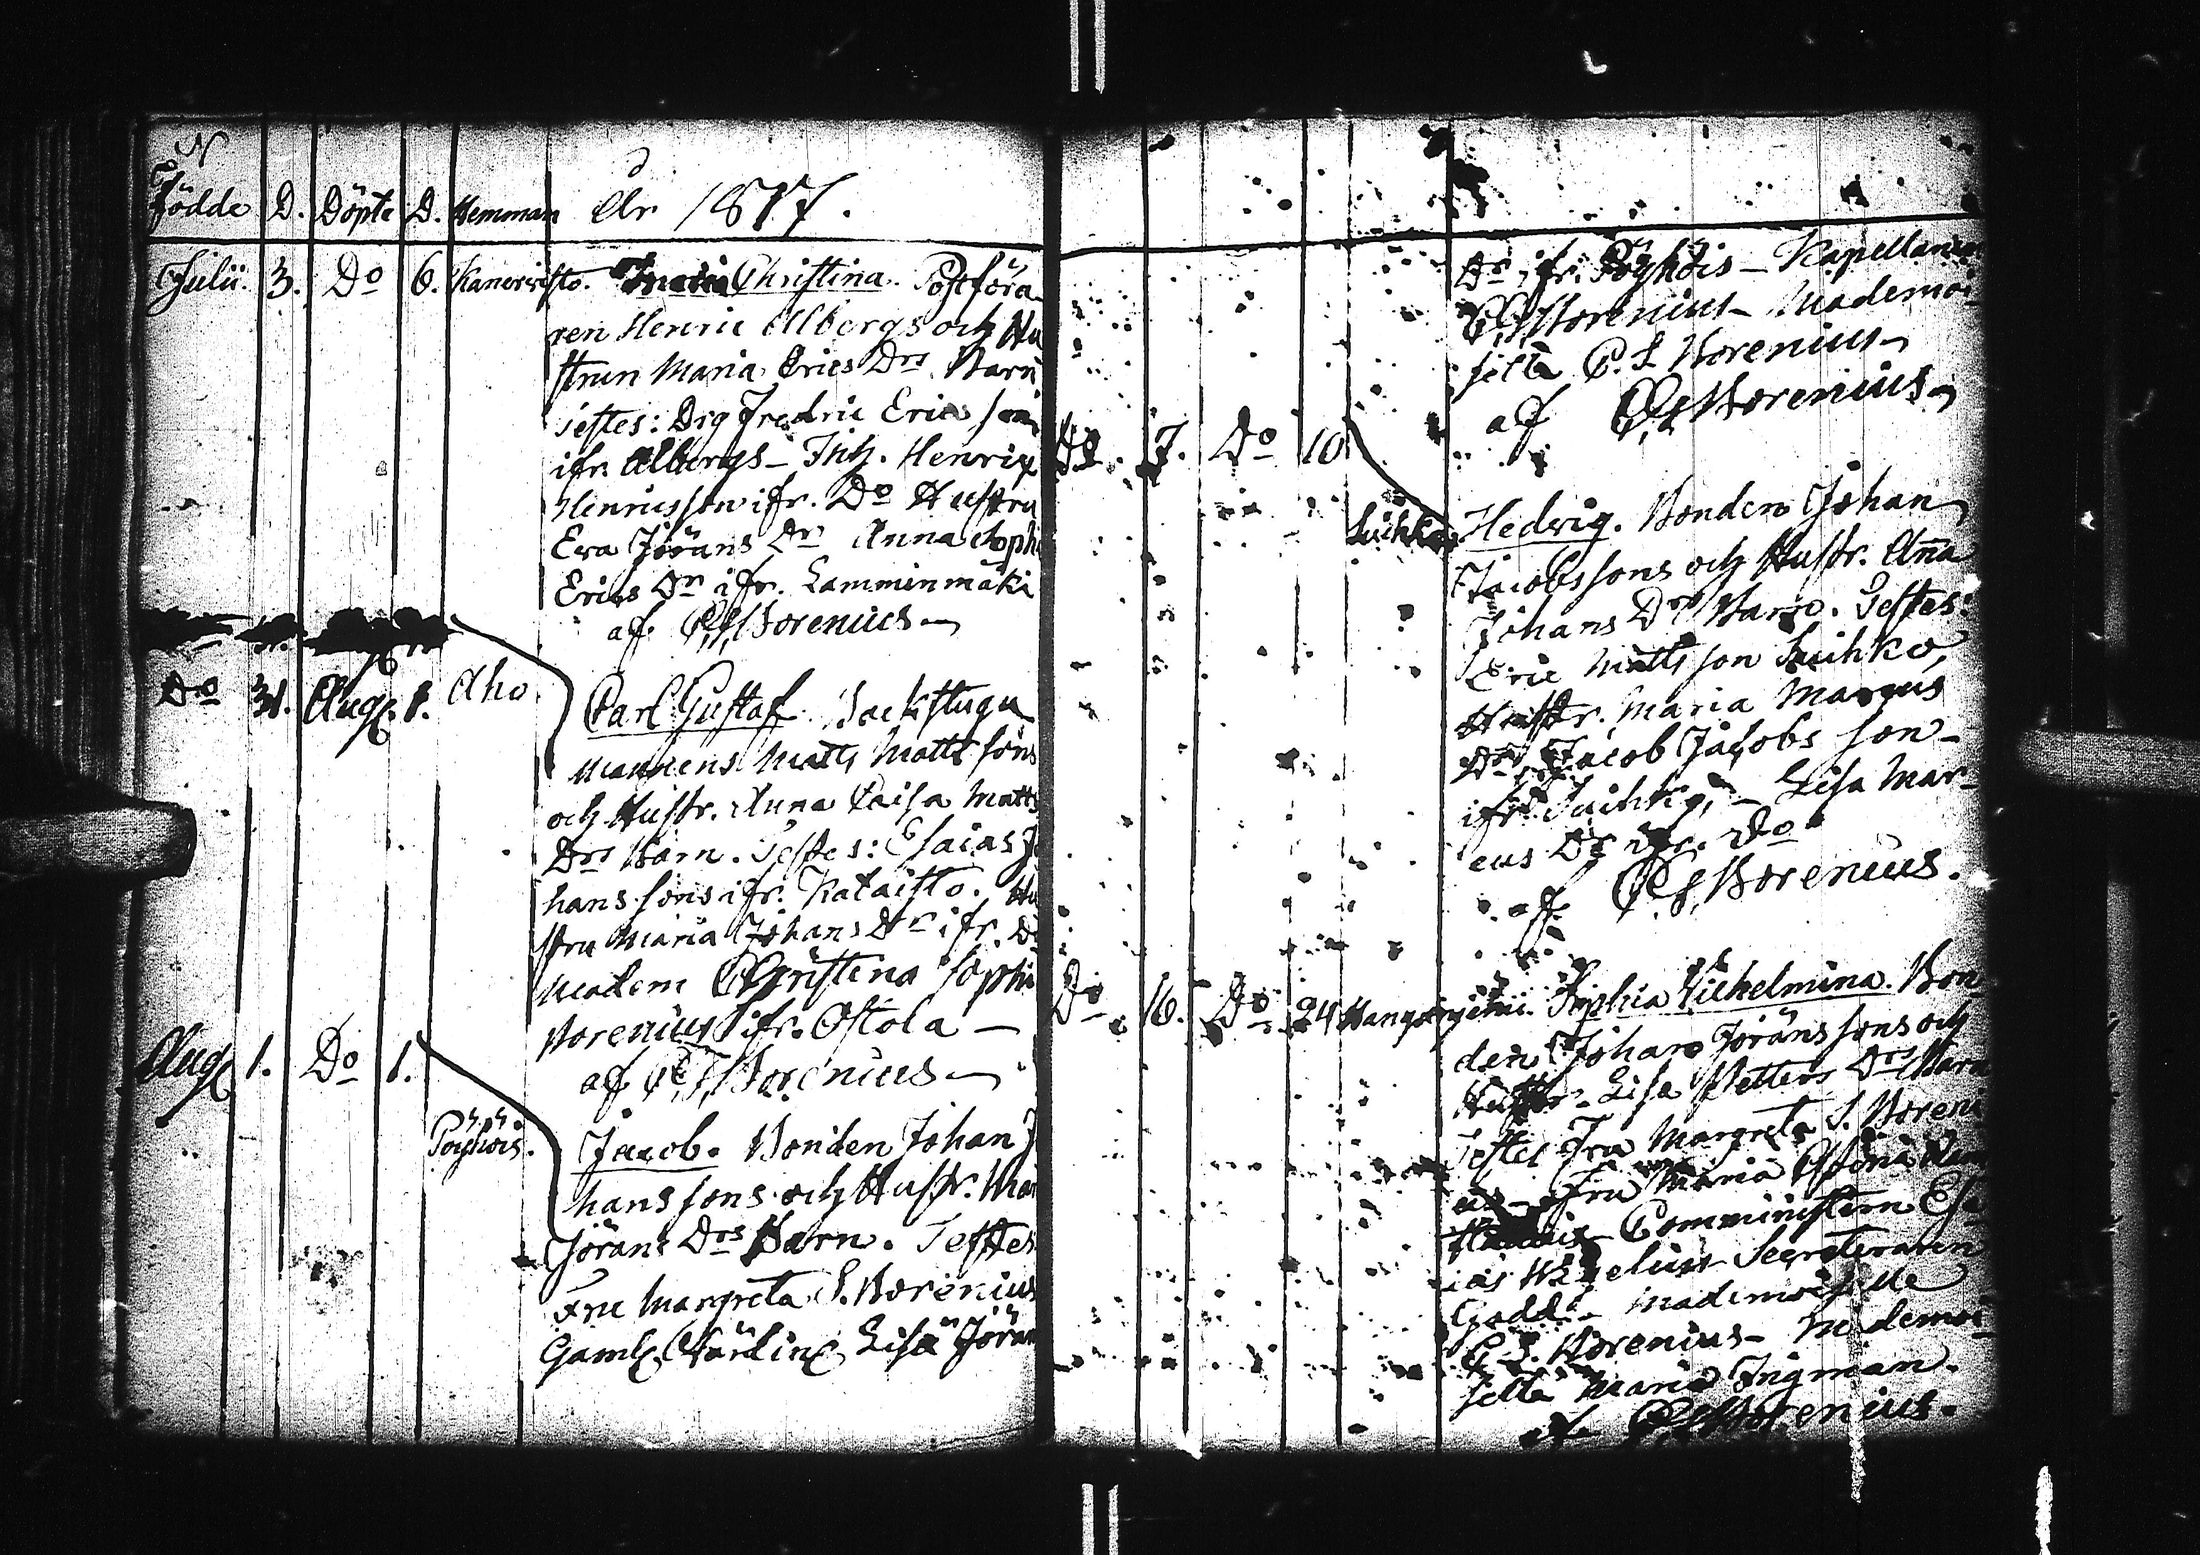 N
Födde D. Döpte D. Hemman År 1817.
Julii. 3. Do 6. Kanervisto. Maria Christina. Postföra-
ren Henric Albergs och Hu
strun Maria Erics Drs Barn
Testes: Drg Fredric Erics son
ifr. Albergs - Inh. Henrix
Henricsson ifr. Do Hustru
Eva Jörans Dr Anna Sophi
Erics Dr ifr. Lamminmäki
af Borenius
Do 31. Aug. 1. Aho Carl Gustaf. Backstugu
mannens Matts Matts sons
och Hustr. Anna Caisa Matts
Drs Barn. Testes: Esaias Jo
hans sons ifr. Kataisto. Hu
stru Maria Johans Dr ifr. Do
Madem Christina Sophi
Borenius ifr. Ostola -
af Borenius
Aug. 1. Do 1.
Pöyhöis. Jacob. Bonden Johan J
hans sons och Hustr. Mar
Jörans Drs Barn. Testes
Fru Margreta S. Borenius
Gaml. Lisa Jöran
Dr ifr. Pöyhöis - Kapellanen
Borenius - Mademoi-
selle C. S Borenius
af Borenius
Do. 7. Do 10
Suihko Hedvig. Bonden Johan
Jacobssons och Hustr. Ana
Johans Dr Barn. Testes:
Eric Mattsson Suihko,
Hustr. Maria Marcus
Dr, Jacob Jacobs son -
ifr. Suihko, - Lisa Mar-
cus Dr ifr. Do
af Borenius.
Do. 16. Do. 24 Sophia Vilhelmina. Bon-
den Johan Jörans sons och
Hustr. Lisa Petters Drs Barn
Testes Fru Margreta S. Boreni
us - Fru Maria
Comministern Esa
ias Secreteraren
Gadd - Mademoiselle
C. S. Borenius - Mademoi-
selle Maria Ingman.
af Borenius.